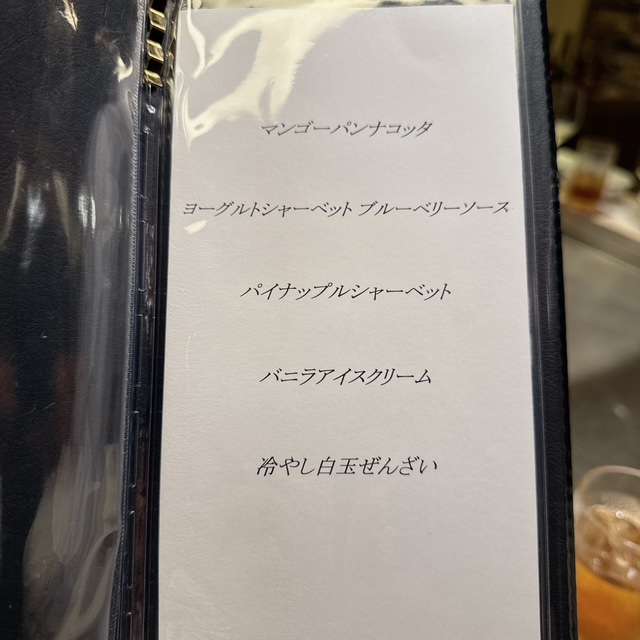 マンゴーパンナコッタ
ヨーグルトシャーベット ブルーベリーソース
パイナップルシャーベット
バニラアイスクリーム
冷やし白玉ぜんざい